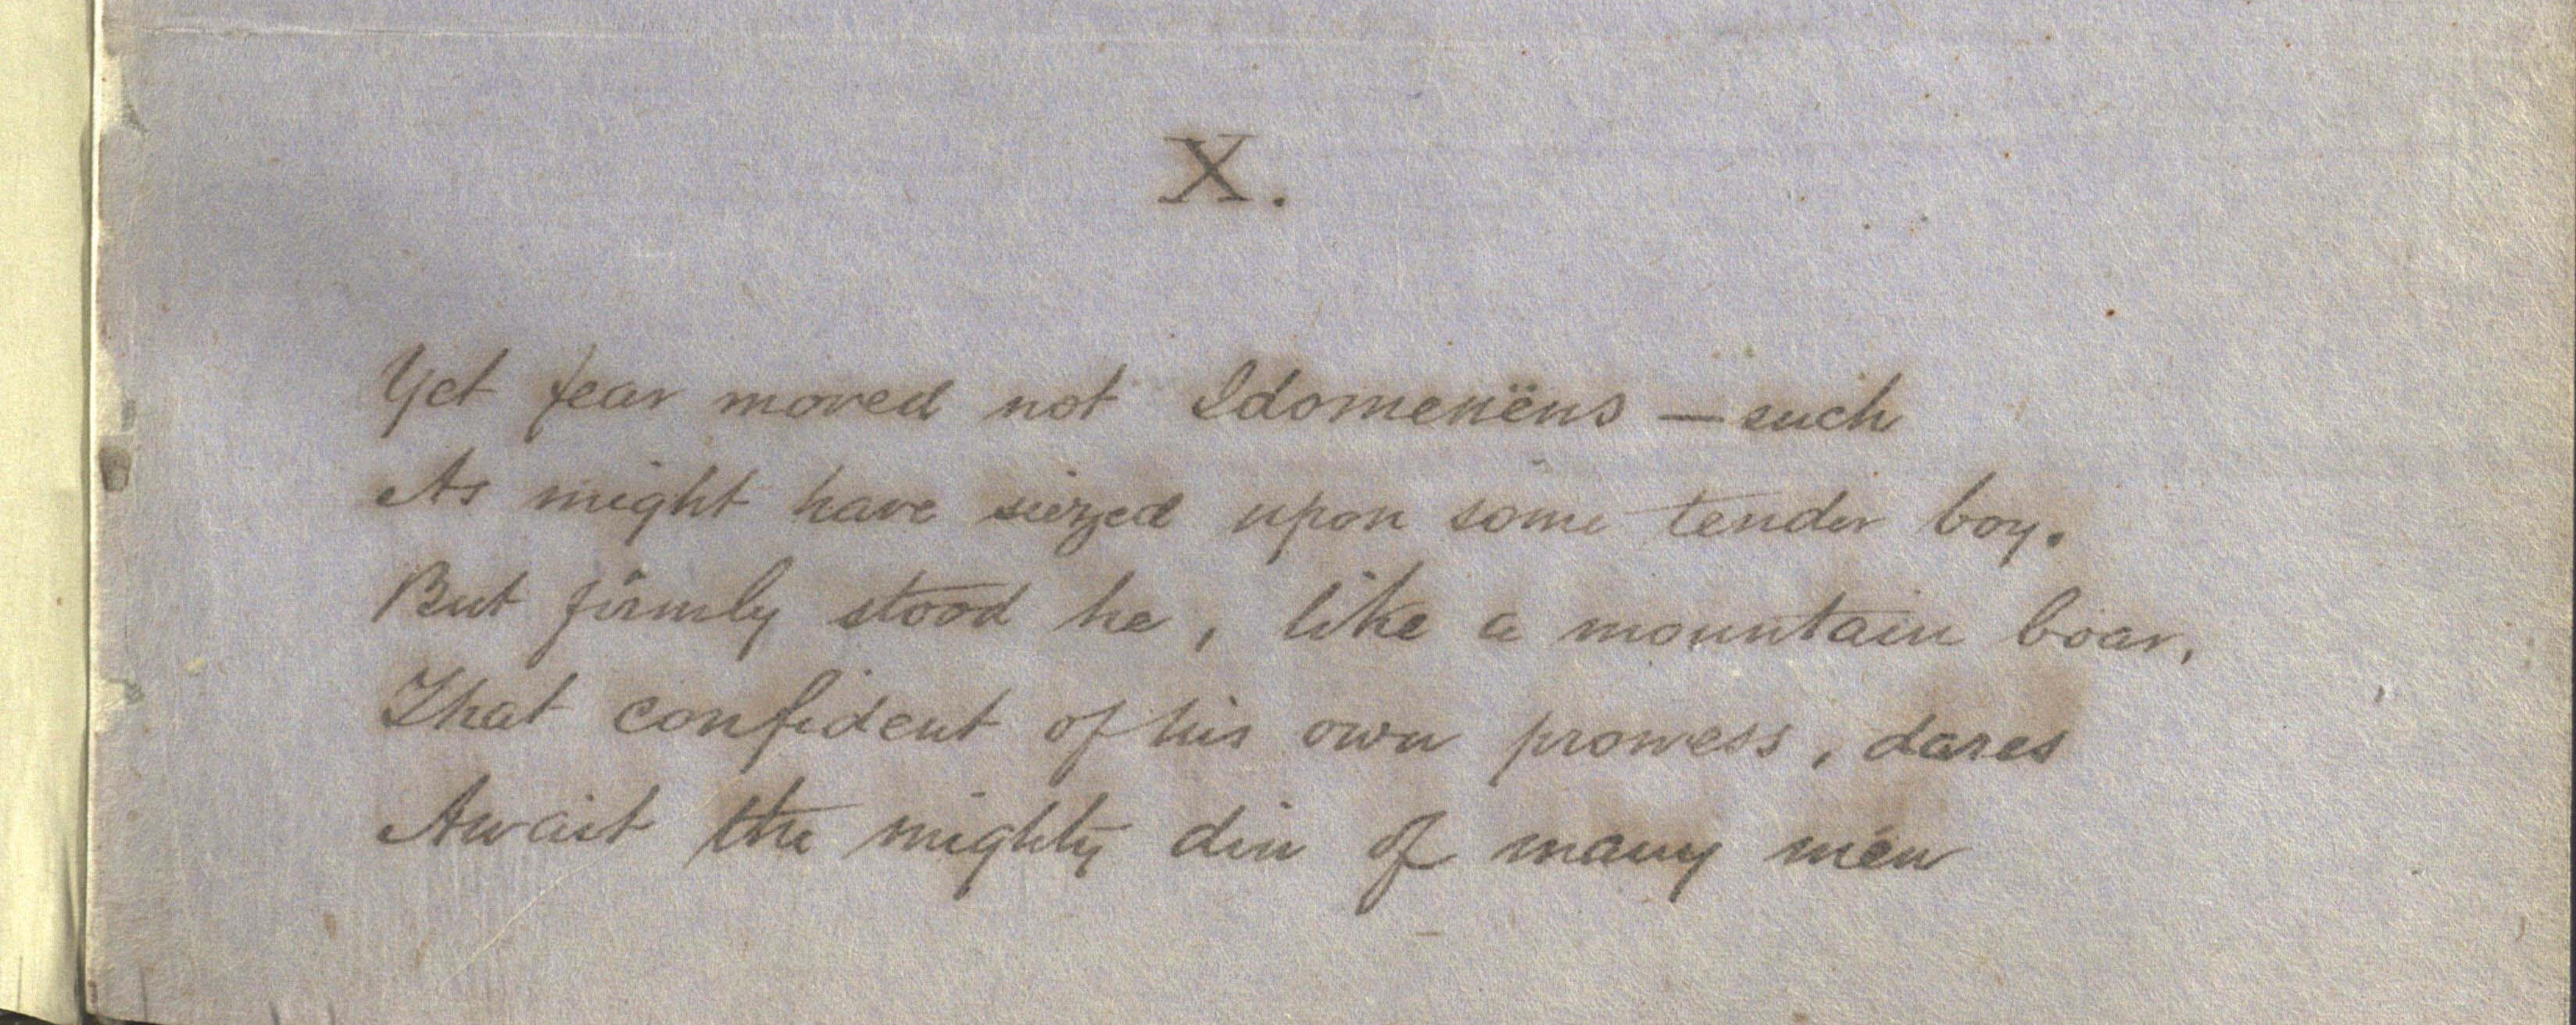 X.
Yet fear moved not Idomenëus — such
As might have siezed upon some tender boy.
But firmly stood he, like a mountain boar,
That confident of his own prowess, dares
Await the mighty din of many men